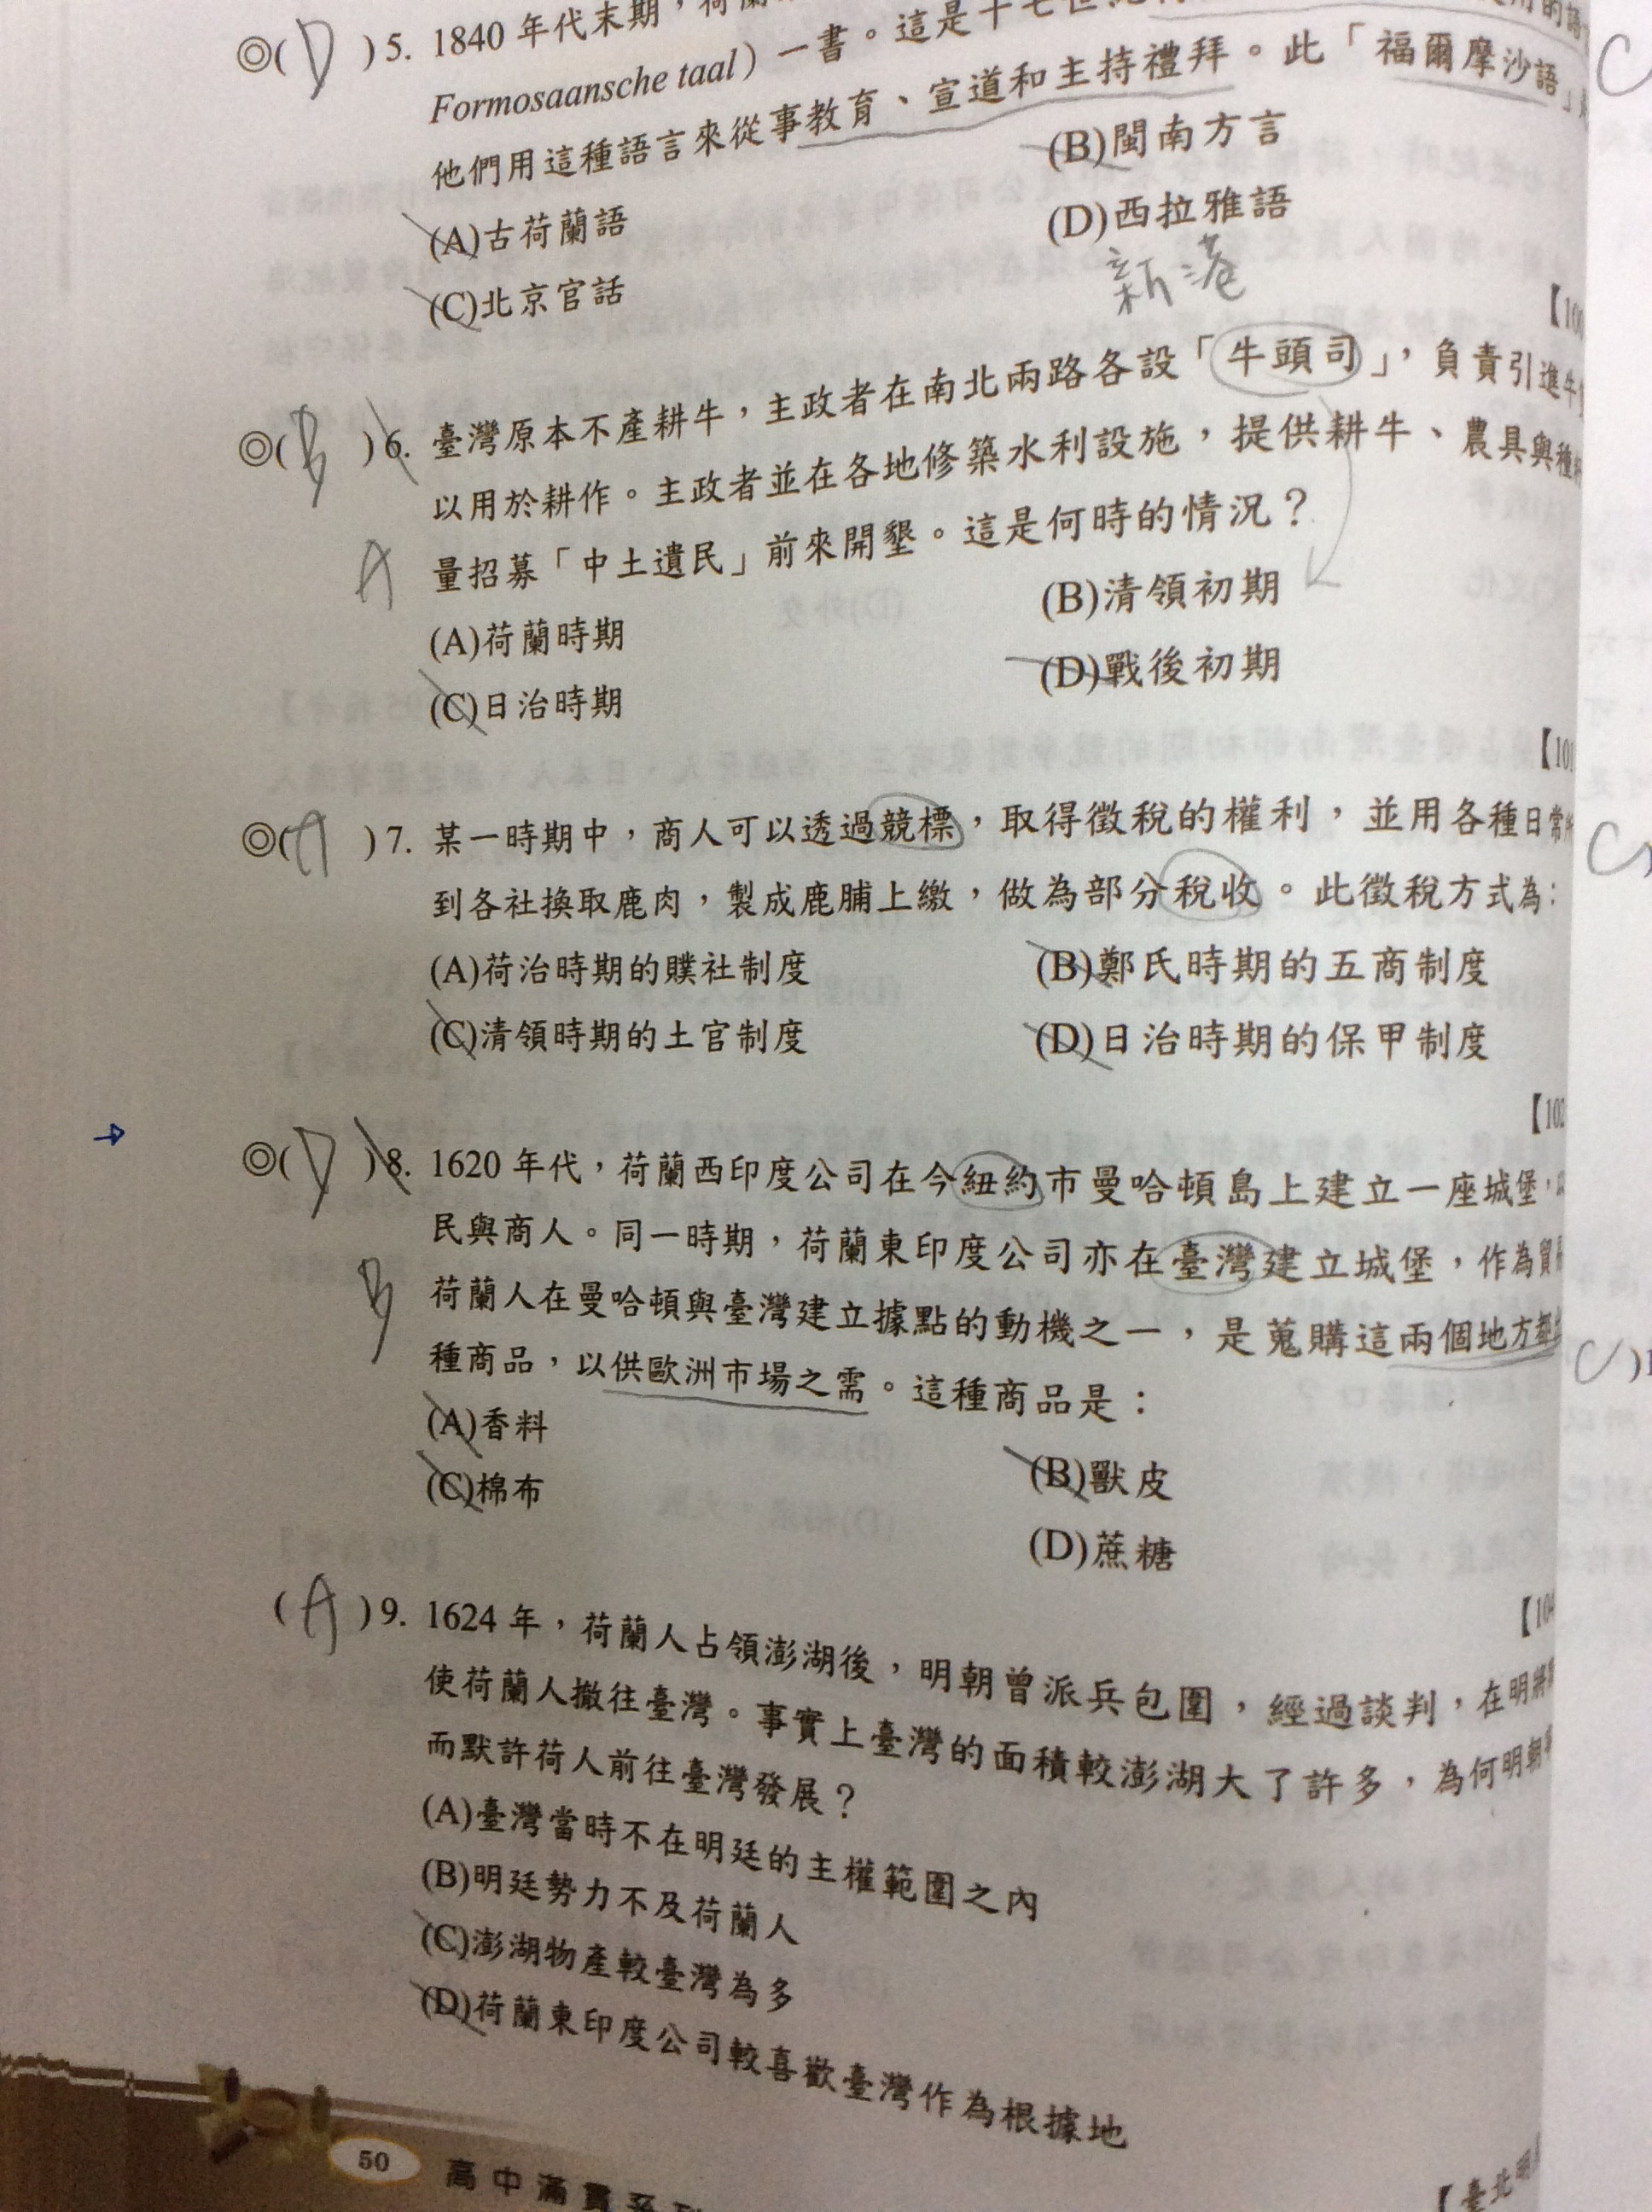 ◎( D ) 5. 1840 年代末期，荷蘭
Formosaansche taal）一書。這是十七世紀
他們用這種語言來從事教育、宣道和主持禮拜。此「福爾摩沙語」
(A)古荷蘭語 (B)閩南方言
(C)北京官話 (D)西拉雅語
新港
【100
◎( B ) 6. 臺灣原本不產耕牛，主政者在南北兩路各設「牛頭司」，負責引進牛
以用於耕作。主政者並在各地修築水利設施，提供耕牛、農具與種
A 量招募「中土遺民」前來開墾。這是何時的情況？
(A)荷蘭時期 (B)清領初期
(C)日治時期 (D)戰後初期
【101
◎( A ) 7. 某一時期中，商人可以透過競標，取得徵稅的權利，並用各種日常所
到各社換取鹿肉，製成鹿脯上繳，做為部分稅收。此徵稅方式為：
(A)荷治時期的贌社制度 (B)鄭氏時期的五商制度
(C)清領時期的土官制度 (D)日治時期的保甲制度
【102
◎( D ) 8. 1620 年代，荷蘭西印度公司在今紐約市曼哈頓島上建立一座城堡，以
民與商人。同一時期，荷蘭東印度公司亦在臺灣建立城堡，作為貿
B 荷蘭人在曼哈頓與臺灣建立據點的動機之一，是蒐購這兩個地方都
種商品，以供歐洲市場之需。這種商品是：
(A)香料 (B)獸皮
(C)棉布 (D)蔗糖
【104
( A ) 9. 1624 年，荷蘭人占領澎湖後，明朝曾派兵包圍，經過談判，在明將
使荷蘭人撤往臺灣。事實上臺灣的面積較澎湖大了許多，為何明朝
而默許荷人前往臺灣發展？
(A)臺灣當時不在明廷的主權範圍之內
(B)明廷勢力不及荷蘭人
(C)澎湖物產較臺灣為多
(D)荷蘭東印度公司較喜歡臺灣作為根據地
【臺北明
50 高中滿貫系列